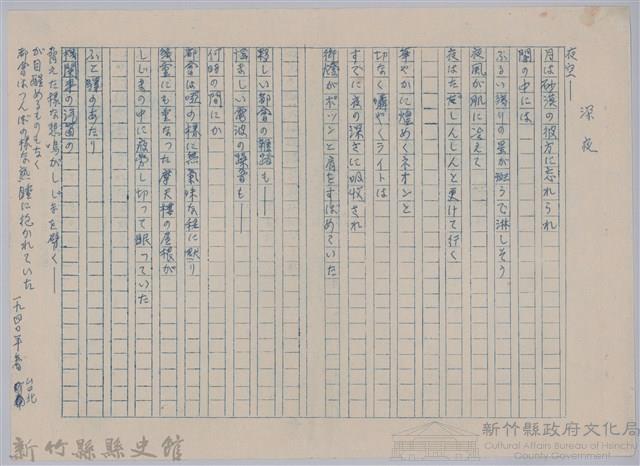 深夜
夜空——
月は砂漠の彼方に忘れられ
闇の中には
ぶるい獨りの星が瞬うで淋しそう
夜風が肌に冷えて
夜はたゞしんしんと更けて行く
華やかに煌めくネオンと
切なく囁やくライトは
すでに夜の深さに吸收され
街燈がポツンと肩をすぼめていた
軽しい都會の雜踏も——
悩ましい電波の騒音も——
何時の間にか
都會は唖の様に無氣味な程に默り
幾重にも重なった摩天樓の屋根が
しじまの中に疲労し切って眠っていた
ふと驛のあたり
機関車の汽笛の
怯えた様な悲鳴がしじまを劈く——
が目醒めるものもなく
都會はつんぼの様な熟睡に抱かれていた
一九四〇年春 台北
新竹縣縣史館
新竹縣政府文化局
Cultural Affairs Bureau of Hsinchu
County Government